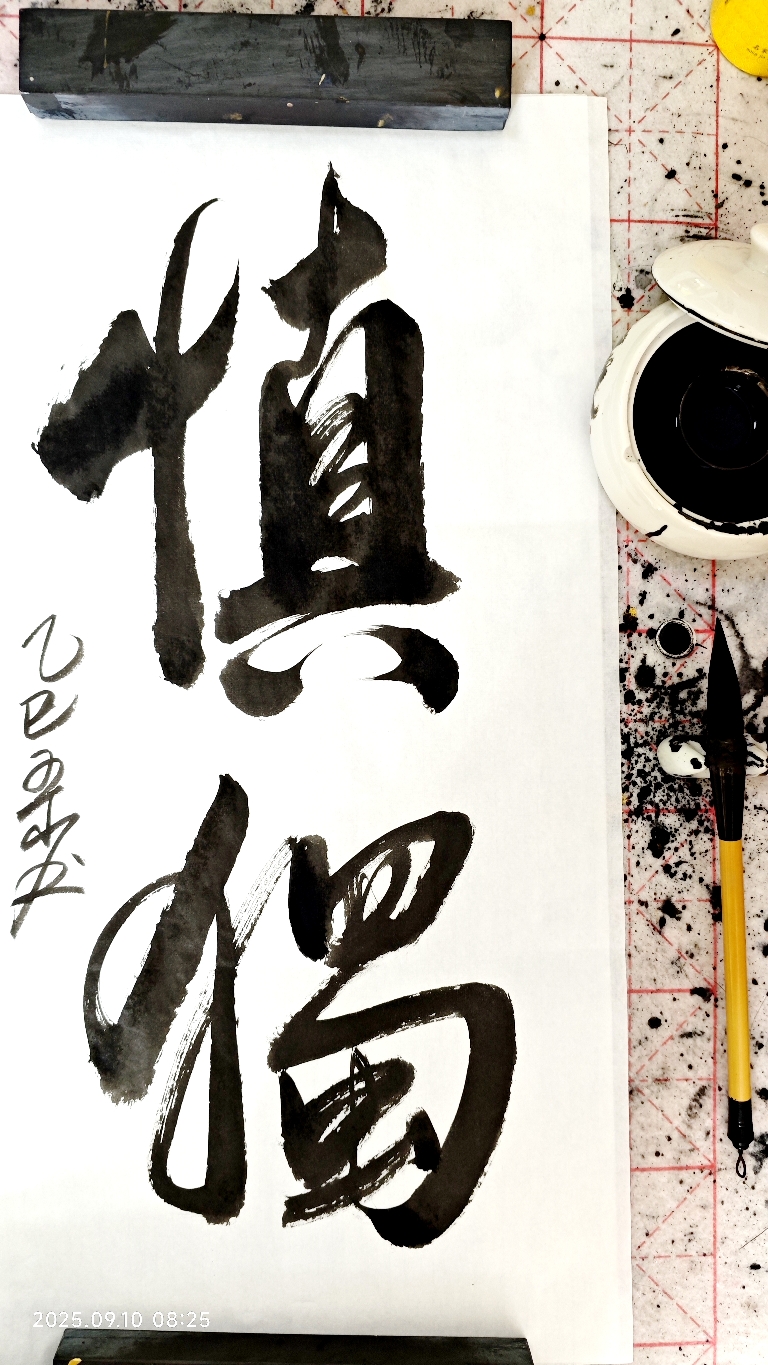 慎獨
乙巳
2025.09.10 08:25